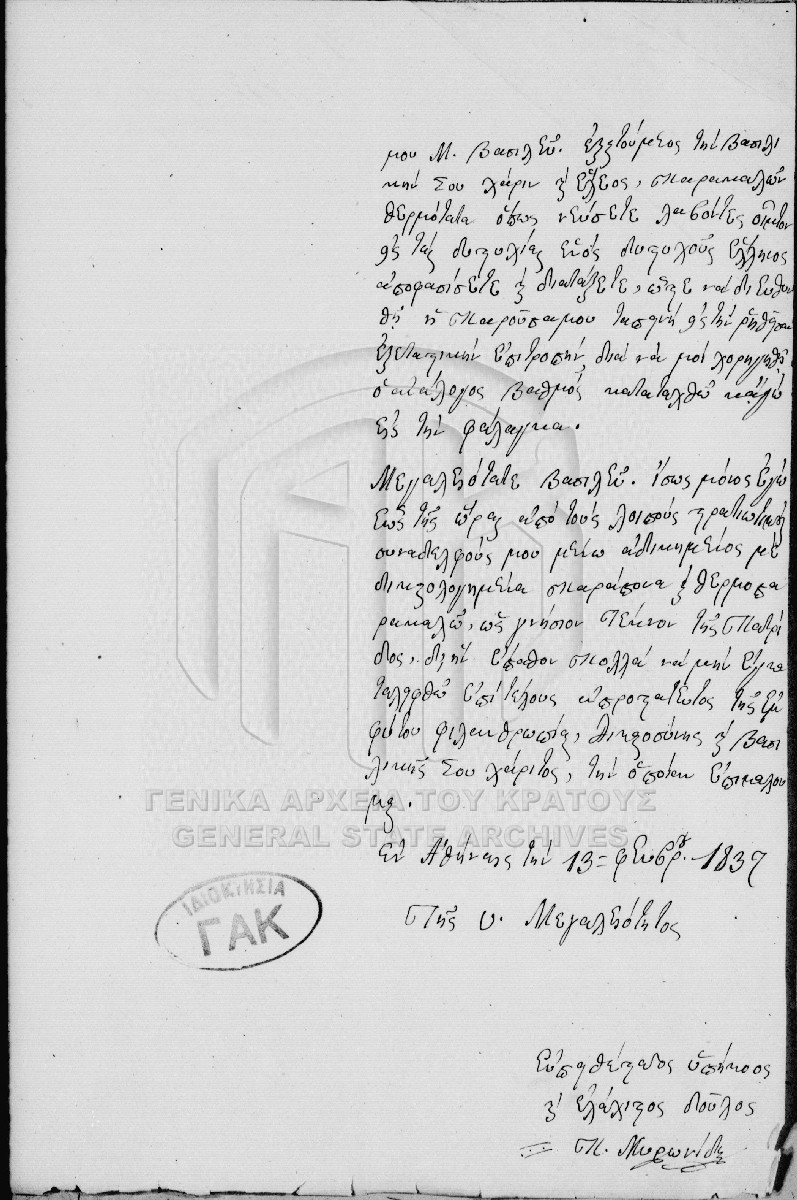 μου Μ. Βασιλεῦ. ἐξαιτούμενος τὴν Βασιλι
κήν Σου χάριν κ' ἔλεος, παρακαλῶν
θερμότατα ὅπως νεύσετε λαβόντες οἶκτον
εἰς τὰς δυστυχίας ἑνός δυστυχοῦς Ἕλληνος
ἀποφασίσετε κ' διατάξετε, ὥστε νά διευθυν
θῇ ἡ παροῦσα μου ταπεινή εἰς τὴν ῥηθεῖσαν
ἐξεταστικήν ἐπιτροπήν, διά νά μοί χορηγηθῇ
ὁ ἀνάλογος βαθμός καταταχθῶ κᾀγώ
εἰς τήν φάλαγγα.
Μεγαλειότατε Βασιλεῦ. ἴσως μόνος ἐγώ
ἕως τῆς ὥρας ἀπό τούς λοιπούς στρατιωτικούς
συναδελφούς μου μένω ἀδικημένος μέ
δικαιολογημένα παράπονα κ' θερμοπα
ρακαλῶ, ὡς γνήσιον τέκνον τῆς πατρί
δος, δι' ἥν ἔπαθον πολλά νά μήν ἐγκα
ταλειφθῶ ἐπί τέλους ἀπροστάτευτος τῆς ἐμ
φύτου φιλανθρωπίας, δικαιοσύνης κ' βασι
λικῆς Σου χάριτος, τὴν ὁποίαν ἐπικαλοῦ
μαι.
Ἐν Ἀθήναις τὴν 13 = φευβρ. 1837
Τῆς Υ. Μεγαλειότητος
Εὐπειθέστατος ὑπήκοος
κ' ἐλάχιστος δοῦλος
Π. Μυρωνίδης
ΓΕΝΙΚΑ ΑΡΧΕΙΑ ΤΟΥ ΚΡΑΤΟΥΣ
GENERAL STATE ARCHIVES
ΙΔΙΟΚΤΗΣΙΑ
ΓΑΚ